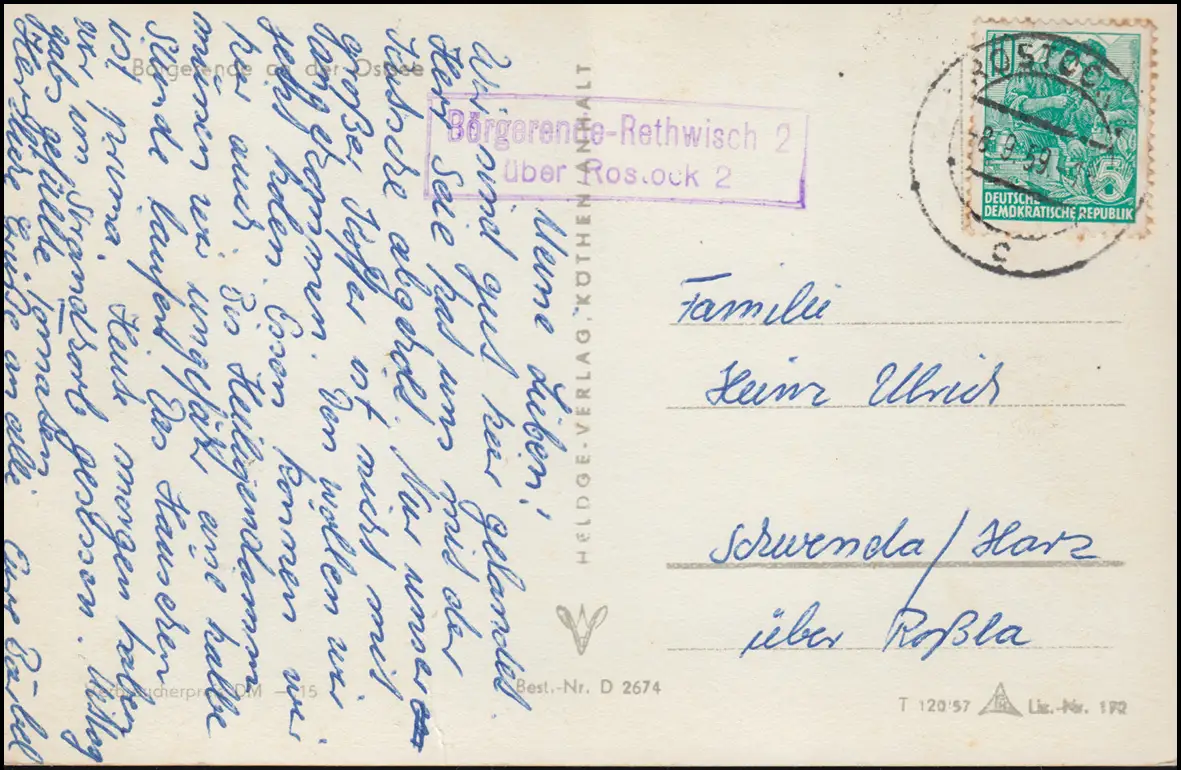 Börgerende an der Ostsee
Meine Lieben!
Wir sind gut hier gelandet.
Herr Seie hat uns mit der
Kutsche abgeholt. Nur unser
großer Koffer ist nicht mit
angekommen. Den wollen wir
jetzt holen. Essen können wir
hier auch. Bis Heiligendamm
müssen wir ungefähr eine halbe
Stunde laufen. Das Häuschen
ist prima. Heute morgen haben
wir im Strandkorb gesessen. Mittag
gab's gefüllte Tomaten.
Herzliche Grüße an alle. Eure Bärbel
Verbraucherpreis DM –.15
HELDGE-VERLAG, KÖTHEN/ANHALT
Best.-Nr. D 2674
Börgerende-Rethwisch 2
über Rostock 2
ROSTOCK 1
-8.9.59
c
10
5
DEUTSCHE
DEMOKRATISCHE REPUBLIK
Familie
Heinz Ulrich
Schwenda/Harz
über Roßla
T 120/57
Liz.-Nr. 172